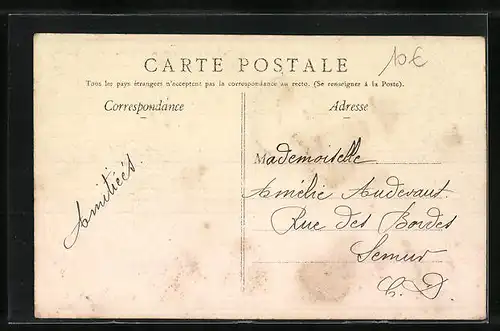 CARTE POSTALE
10 €
Tous les pays étrangers n'acceptent pas la correspondance au recto. (Se renseigner à la Poste).
Correspondance
Adresse
Amitiées.
Mademoiselle
Amélie Audevaut
Rue des Bordes
Semur
C. D